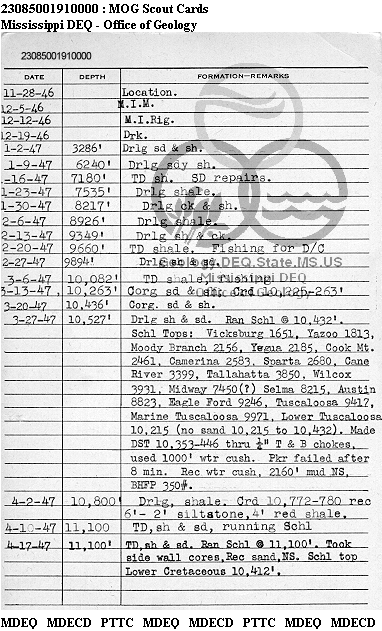 23085001910000 : MOG Scout Cards
Mississippi DEQ - Office of Geology
23085001910000
DATE DEPTH FORMATION—REMARKS
11-28-46 Location.
12-5-46 M.I.M.
12-12-46 M.I.Rig.
12-19-46 Drk.
1-2-47 3286' Drlg sd & sh.
1-9-47 6240' Drlg sdy sh.
-16-47 7180' TD sh. SD repairs.
1-23-47 7535' Drlg shale.
1-30-47 8217' Drlg ck & sh.
2-6-47 8926' Drlg shale.
2-13-47 9349' Drlg sh & ck.
2-20-47 9660' TD shale. Fishing for D/C
2-27-47 9894' Drlg sh & sd.
Geology.DEQ.State.MS.US
Mississippi DEQ
3-6-47 10,082' TD shale, fishing
3-13-47 10,263' Corg sd & sh, Crd 10,225-263'
Office of Geology
3-20-47 10,436' Corg. sd & sh.
3-27-47 10,527' Drlg sh & sd. Ran Schl @ 10,432'.
Schl Tops: Vicksburg 1651, Yazoo 1813,
Moody Branch 2156, Yegua 2185, Cook Mt.
2461, Camerina 2583, Sparta 2680, Cane
River 3399, Tallahatta 3850, Wilcox
3931, Midway 7450(?) Selma 8215, Austin
8823, Eagle Ford 9246, Tuscaloosa 9417,
Marine Tuscaloosa 9971, Lower Tuscaloosa
10,215 (no sand 10,215 to 10,432). Made
DST 10,353-446 thru ¼" T & B chokes,
used 1000' wtr cush. Pkr failed after
8 min. Rec wtr cush, 2160' mud NS,
BHFP 350#.
4-2-47 10,800' Drlg, shale. Crd 10,772-780 rec
6'- 2' siltstone, 4' red shale.
4-10-47 11,100 TD, sh & sd, running Schl
4-17-47 11,100' TD, sh & sd. Ran Schl @ 11,100'. Took
side wall cores, Rec sand, NS. Schl top
Lower Cretaceous 10,412'.
MDEQ MDECD PTTC MDEQ MDECD PTTC MDEQ MDECD